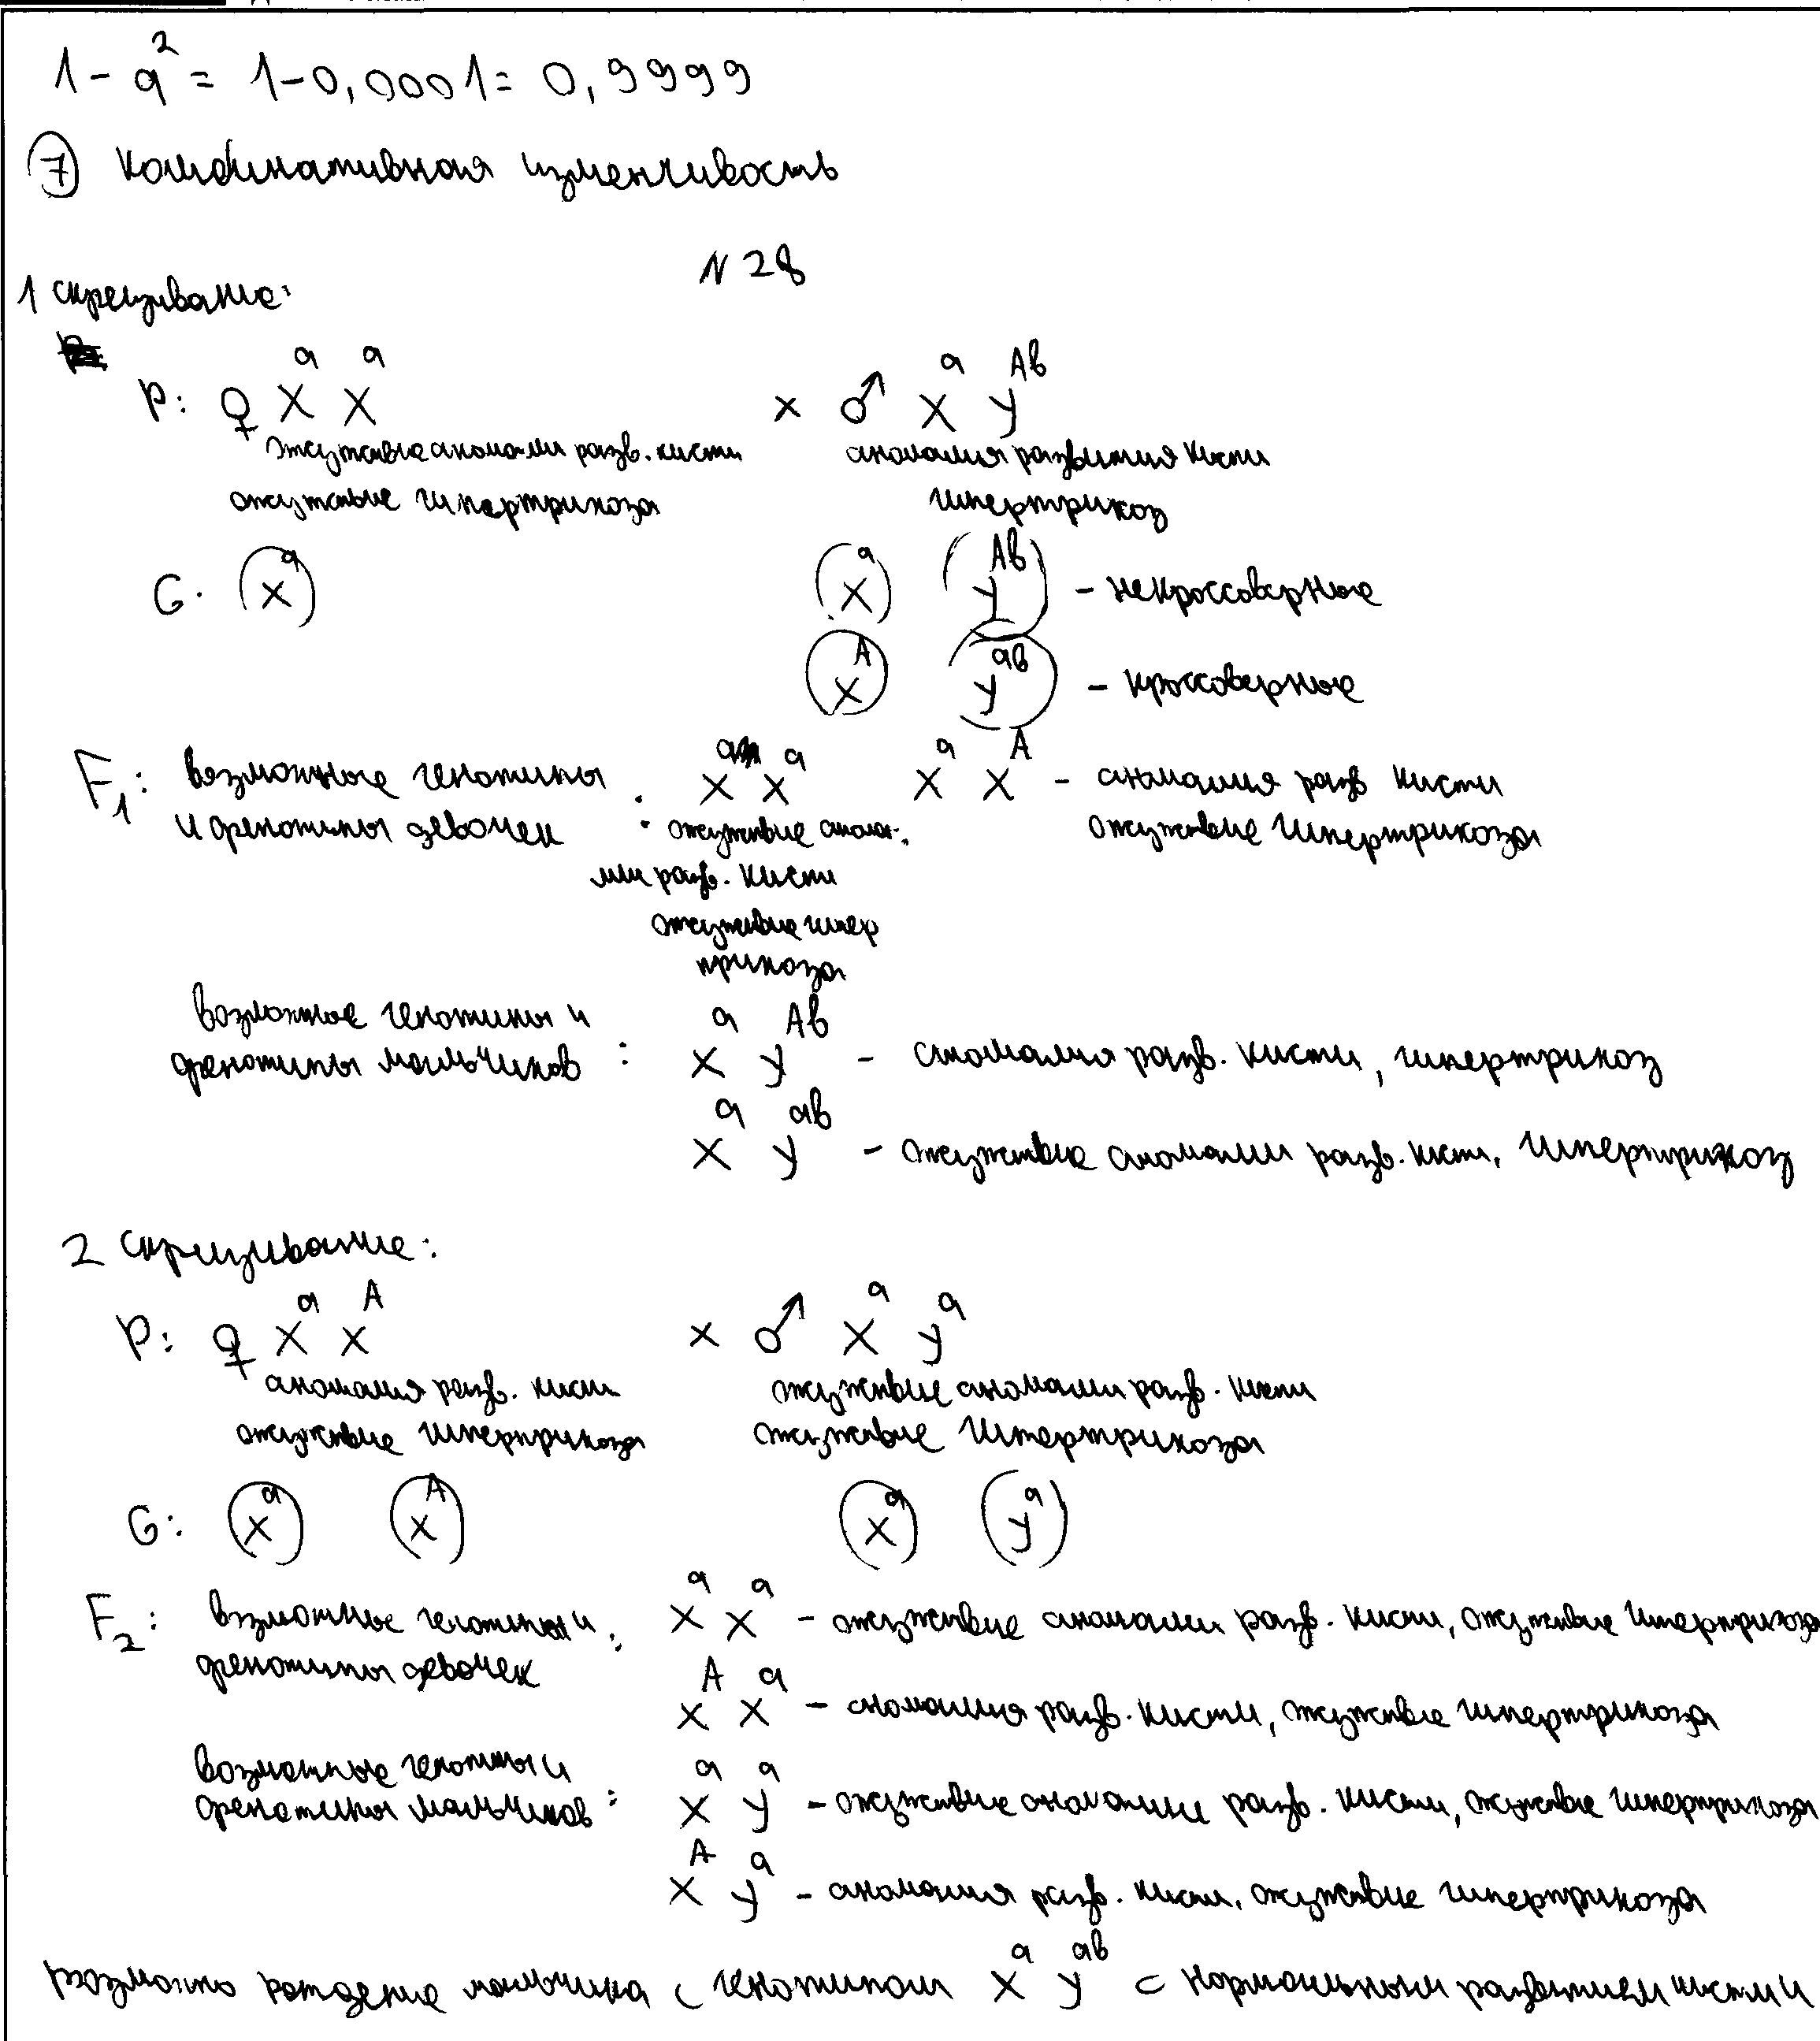 1 - q² = 1 - 0,0001 = 0,9999
⑦ Комбинативная изменчивость
N 28
1 скрещивание:
P: ♀ XᵃXᵃ × ♂ XᵃYᴬᵇ
отсутствие аномалии разв. кисти аномалия развития кисти
отсутствие гипертрихоза гипертрихоз
G. (Xᵃ) (Xᵃ) (Yᴬᵇ) - некроссоверные
(Xᴬ) (Yᵃᵇ) - кроссоверные
F₁: возможные генотипы : XᵃXᵃ XᵃXᴬ - аномалия разв кисти
и фенотипы девочек отсутствие анома- отсутствие гипертрихоза
лии разв. кисти
отсутствие гипер
трихоза
возможные генотипы и
фенотипы мальчиков : XᵃYᴬᵇ - аномалия разв. кисти, гипертрихоз
XᵃYᵃᵇ - отсутствие аномалии разв. кисти, гипертрихоз
2 скрещивание:
P: ♀ XᵃXᴬ × ♂ XᵃYᵃ
аномалия разв. кисти отсутствие аномалии разв. кисти
отсутствие гипертрихоза отсутствие гипертрихоза
G: (Xᵃ) (Xᴬ) (Xᵃ) (Yᵃ)
F₂: возможные генотипы и : XᵃXᵃ - отсутствие аномалии разв. кисти, отсутствие гипертрихоза
фенотипы девочек
XᴬXᵃ - аномалия разв. кисти, отсутствие гипертрихоза
возможные генотипы и
фенотипы мальчиков : XᵃYᵃ - отсутствие аномалии разв. кисти, отсутствие гипертрихоза
XᴬYᵃ - аномалия разв. кисти, отсутствие гипертрихоза
возможно рождение мальчика с генотипом XᵃYᵃᵇ с нормальным развитием кисти и